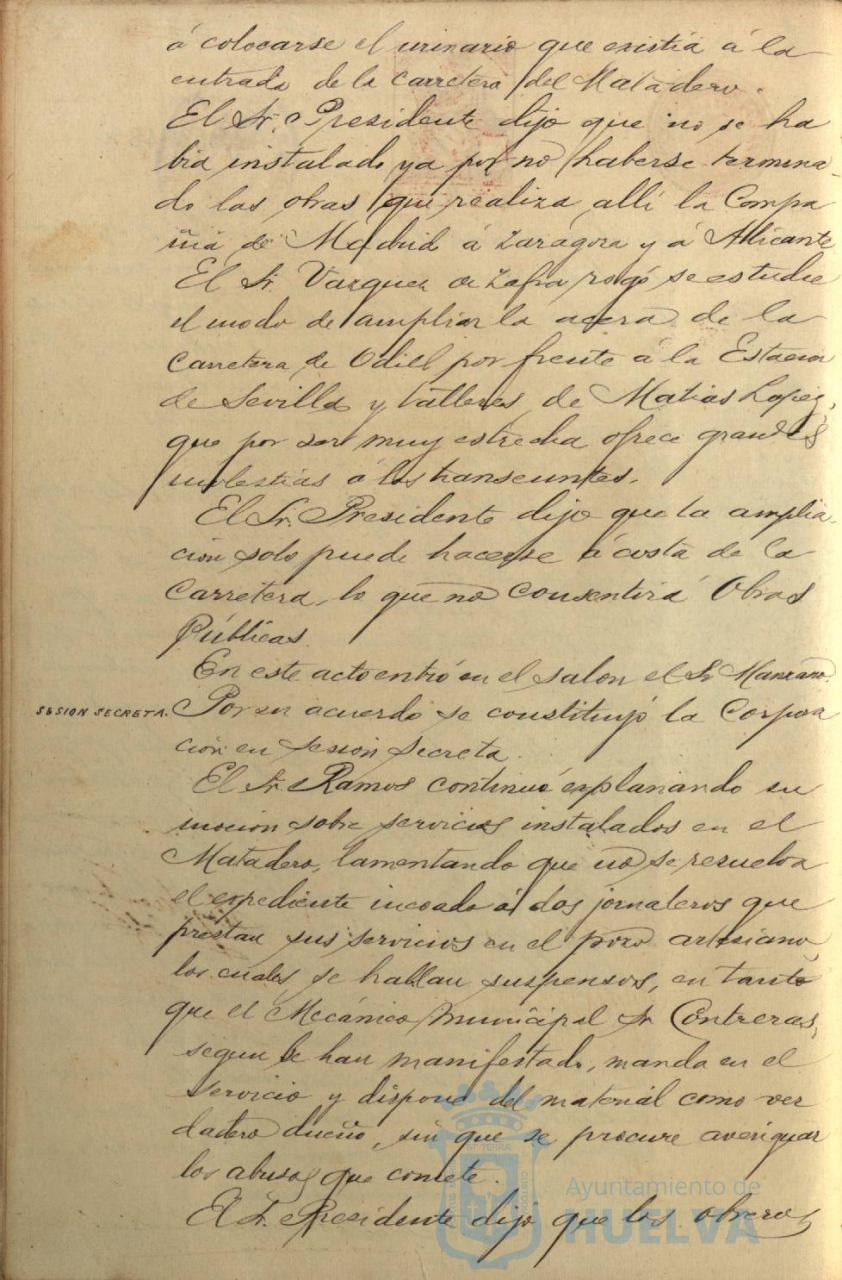 á colocarse el urinario que existia á la
entrada de la carretera del Matadero.
El Sr. Presidente dijo que no se ha
bia instalado ya por no haberse termina-
do las obras que realiza allí la Compa
ñia de Madrid á Zaragoza y á Alicante
El Sr. Vazquez de Zafra rogó se estudie
el modo de ampliar la acera de la
Carretera de Odiel por frente á la Estacion
de Sevilla y talleres de Matias Lopez,
que por ser muy estrecha ofrece grandes
molestias á los transeuntes.
El Sr. Presidente dijo que la amplia-
ción solo puede hacerse á costa de la
Carretera, lo que no consentirá Obras
Públicas.
En este acto entró en el salon el Sr. Manzano.
SESION SECRETA. Por su acuerdo se constituyó la Corpora
ción en sesion secreta.
El Sr. Ramos continuó explanando su
mocion sobre servicios instalados en el
Matadero, lamentando que no se resuelva
el expediente incoado á dos jornaleros que
prestan sus servicios en el pozo artesiano,
los cuales se hallan suspensos, en tanto
que el Mecánico Municipal Sr. Contreras,
segun le han manifestado, manda en el
servicio y dispone del material como ver
dadero dueño, sin que se procure averiguar
los abusos que comete.
El Sr. Presidente dijo que los obreros
Ayuntamiento de
HUELVA